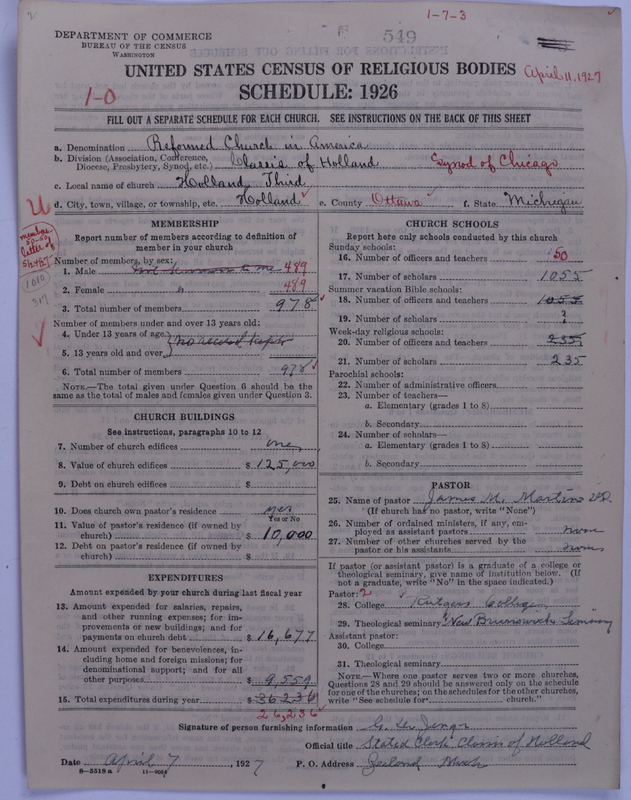 1-7-3
549
DEPARTMENT OF COMMERCE
BUREAU OF THE CENSUS
WASHINGTON
UNITED STATES CENSUS OF RELIGIOUS BODIES
April 11, 1927
SCHEDULE: 1926
1-0
FILL OUT A SEPARATE SCHEDULE FOR EACH CHURCH. SEE INSTRUCTIONS ON THE BACK OF THIS SHEET
a. Denomination Reformed Church in America
b. Division (Association, Conference, Diocese, Presbytery, Synod, etc.) Classis of Holland Synod of Chicago
c. Local name of church Holland Third
d. City, town, village, or township, etc. Holland e. County Ottawa f. State Michigan
MEMBERSHIP
Report number of members according to definition of member in your church
Number of members, by sex:
1. Male 489
2. Female 489
3. Total number of members 978
Number of members under and over 13 years old:
4. Under 13 years of age
no record kept
5. 13 years old and over
6. Total number of members 978
NOTE.—The total given under Question 6 should be the same as the total of males and females given under Question 3.
CHURCH BUILDINGS
See instructions, paragraphs 10 to 12
7. Number of church edifices one
8. Value of church edifices $ 125,000
9. Debt on church edifices $
10. Does church own pastor's residence yes
Yes or No
11. Value of pastor's residence (if owned by church) $ 10,000
12. Debt on pastor's residence (if owned by church) $
EXPENDITURES
Amount expended by your church during last fiscal year
13. Amount expended for salaries, repairs, and other running expenses; for improvements or new buildings; and for payments on church debt $ 16,677
14. Amount expended for benevolences, including home and foreign missions; for denominational support; and for all other purposes $ 9,559
15. Total expenditures during year $ 36236
26,236
CHURCH SCHOOLS
Report here only schools conducted by this church
Sunday schools:
16. Number of officers and teachers 50
17. Number of scholars 1055
Summer vacation Bible schools:
18. Number of officers and teachers 1055
19. Number of scholars ?
Week-day religious schools:
20. Number of officers and teachers 235
21. Number of scholars 235
Parochial schools:
22. Number of administrative officers
23. Number of teachers—
a. Elementary (grades 1 to 8)
b. Secondary
24. Number of scholars—
a. Elementary (grades 1 to 8)
b. Secondary
PASTOR
25. Name of pastor James M. Martin
(If church has no pastor, write "None")
26. Number of ordained ministers, if any, employed as assistant pastors none
27. Number of other churches served by the pastor or his assistants none
If pastor (or assistant pastor) is a graduate of a college or theological seminary, give name of institution below. (If not a graduate, write "No" in the space indicated.)
Pastor: 2
28. College Rutgers College
29. Theological seminary New Brunswick Seminary
Assistant pastor:
30. College
31. Theological seminary
NOTE.—Where one pastor serves two or more churches, Questions 28 and 29 should be answered only on the schedule for one of the churches; on the schedules for the other churches, write "See schedule for church."
Signature of person furnishing information G. De Jonge
Official title Stated Clerk Classis of Holland
Date April 7, 1927 P. O. Address Zeeland Mich
8-5518 a